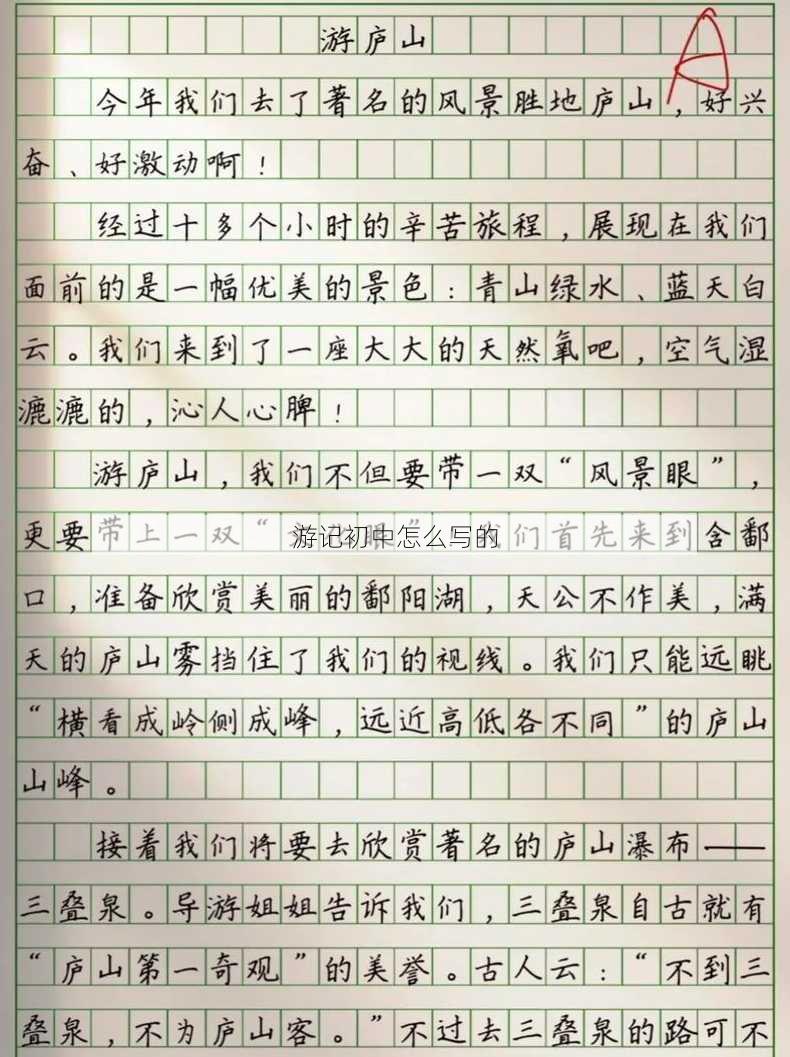 游庐山
A
今年我们去了著名的风景胜地庐山，好兴
奋、好激动啊！
经过十多个小时的辛苦旅程，展现在我们
面前的是一幅优美的景色：青山绿水、蓝天白
云。我们来到了一座大大的天然氧吧，空气湿
漉漉的，沁人心脾！
游庐山，我们不但要带一双“风景眼”，
更要带上一双“眼”们首先来到含鄱
游记初中怎么写的
口，准备欣赏美丽的鄱阳湖，天公不作美，满
天的庐山雾挡住了我们的视线。我们只能远眺
“横看成岭侧成峰，远近高低各不同”的庐山
山峰。
接着我们将要去欣赏著名的庐山瀑布——
三叠泉。导游姐姐告诉我们，三叠泉自古就有
“庐山第一奇观”的美誉。古人云：“不到三
叠泉，不为庐山客。”不过去三叠泉的路可不